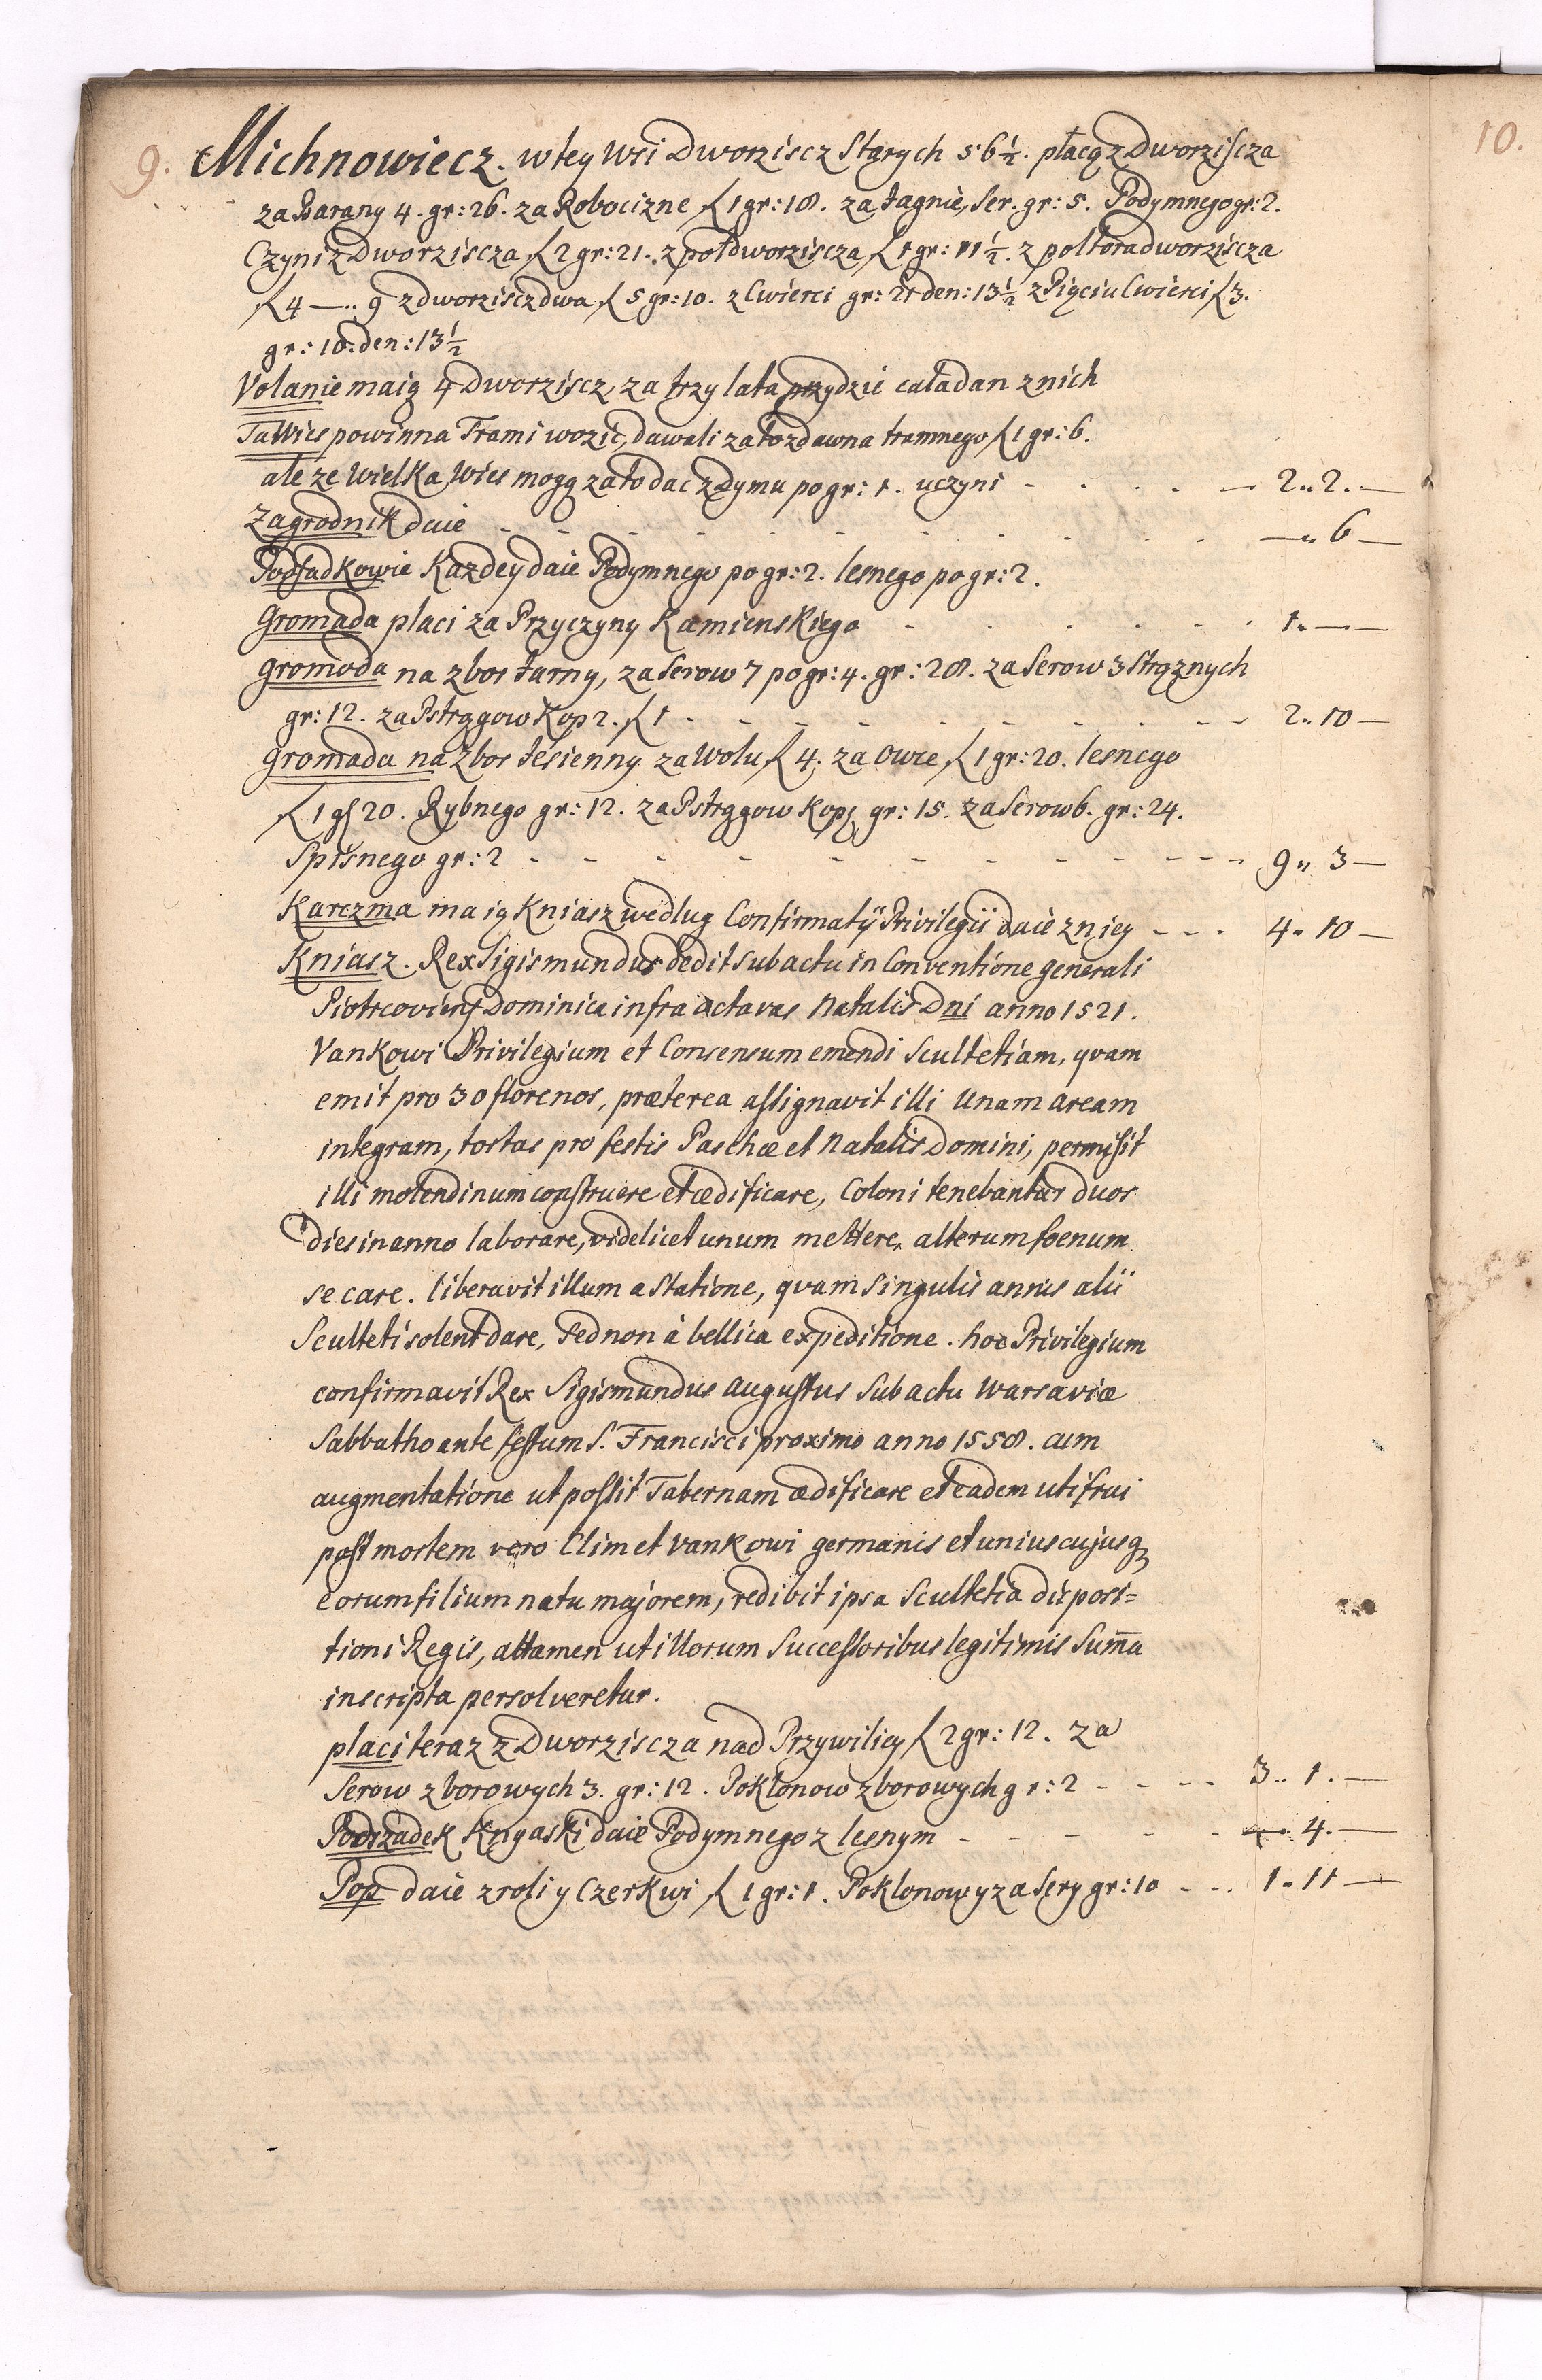 9. Michnowiecz. w tey Wsi Dworziscz Starych 56 1/2. płacą z Dworziscza 10.
za Barany 4. gr: 26. za Robocizne ƒ 1 gr: 18. za Jagnie, Ser. gr: 5. Podymnego gr: 2.
Czyni z Dworziscza ƒ 2 gr: 21. z połdworziscza ƒ 1 gr: 11 1/2. z poltoradworziscza
ƒ 4 —.. 9 z dworziscz dwa ƒ 5 gr: 10. z Cwierci gr: 21 den: 13 1/2 z Pięciu Cwierci ƒ 3.
gr: 10: den: 13 1/2
Volanie maią 4 Dworziscz, za trzy lata przydzie cała dan z nich
Ta Wies powinna Trami wozić, dawali za to zdawna tramnego ƒ 1 gr: 6.
ale ze Wielka Wies mogą za to dac z dymu po gr: 1. uczyni - - - - 2 „ 2. —
Zagrodnik daie - - - - - - - - — „ 6 —
Podsadkowie Kazdey daie Podymnego po gr: 2. lesnego po gr: 2.
Gromada placi za Przyczyny Kamienskiego - - - - - 1 „ — —
Gromada na zbor Jarny, za Serow 7 po gr: 4. gr: 28. za Serow 3 Strąznych
gr: 12. za Pstrągow Kop 2. ƒ 1 - - - - - - - - 2 „ 10 —
Gromada na Zbor Jesienny za Wolu ƒ 4. za Owce ƒ 1 gr: 20. lesnego
ƒ 1 gr 20. Rybnego gr: 12. za Pstrągow Kopę gr: 15. za Serow 6. gr: 24.
Spisnego gr: 2 - - - - - - - - - - 9 „ 3 —
Karczma ma ią Kniasz wedlug Confirmatÿ Privilegii daie z niey - - - 4 „ 10 —
Kniasz. Rex Sigismundus dedit sub actu in Conventione generali
Piotrcoviens Dominica infra octavas Natalis Dni anno 1521.
Vankowi Privilegium et Consensum emendi Scultetiam, qvam
emit pro 30 florenos, præterea assignavit illi Unam aream
integram, tortas pro festis Paschæ et Natalis Domini, permisit
illi molendinum construere et ædificare, Coloni tenebantur duos
dies in anno laborare, videlicet unum mettere, alterum foenum
secare. liberavit illum a Statione, qvam singulis annis alii
Sculteti solent dare, sed non à bellica expeditione. hoc Privilegium
confirmavit Rex Sigismundus Augustus Sub actu Warsaviæ
Sabbatho ante festum S. Francisci proximo anno 1558. cum
augmentatione ut possit Tabernam ædificare et eadem uti frui
post mortem vero Clim et Vankowi germanis et unius cujusq
eorum filium natu majorem, redibit ipsa Scultetia disposi=
tioni Regis, attamen ut illorum Successoribus legitimis Sum̄a
inscripta persolveretur.
placi teraz z Dworziscza nad Przywiliey ƒ 2 gr: 12. za
Serow zborowych 3. gr: 12. Poklonow zborowych gr: 2 - - - - 3 „ 1. —
Podsadek Knyaski daie Podymnego z lesnym - - - - - — „ 4. —
Pop daie z roli y Czerkwi ƒ 1 gr: 1. Poklonow y za Sery gr: 10 - - . 1 „ 11 —